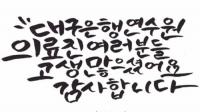 "대구은행연수원
의료진여러분들
고생많으셨어요
감사합니다